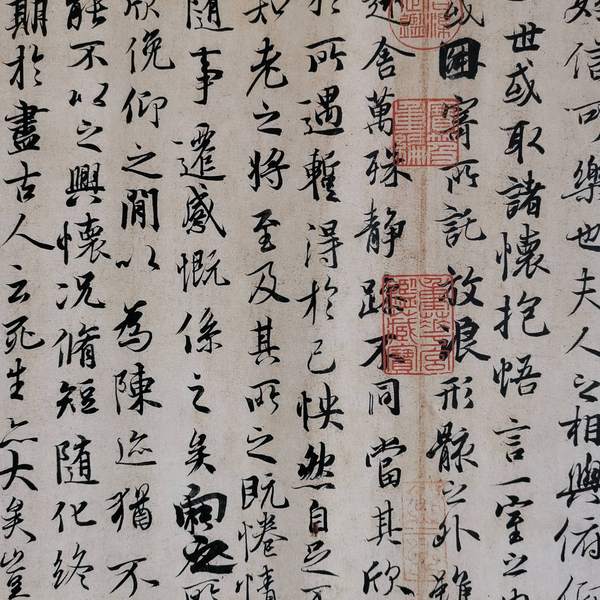 信可樂也夫人之相與俯仰
世或取諸懷抱悟言一室之內
或因寄所託放浪形骸之外雖
趣舍萬殊靜躁不同當其欣
於所遇蹔得於己怏然自足不
知老之將至及其所之既惓情
隨事遷感慨係之矣向之所
欣俛仰之閒以為陳迹猶不
能不以之興懷況脩短隨化終
期於盡古人云死生亦大矣豈